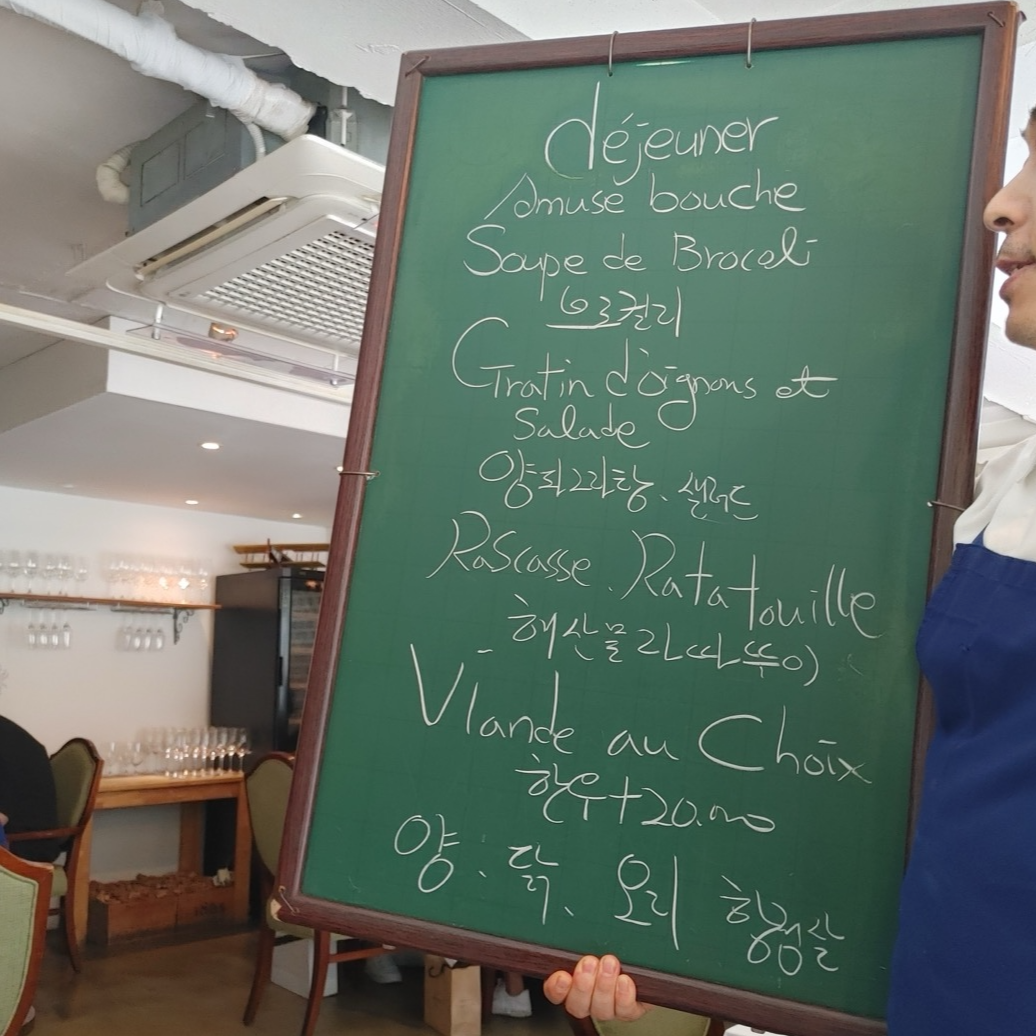 déjeuner
Amuse bouche
Soupe de Brocoli
브로컬리
Gratin d'oignons et
Salade
양파그라탕. 샐러드
Rascasse. Ratatouille
해산물 라따뚜이
Viande au Choix
한우+20.000
양. 닭. 오리 항정살